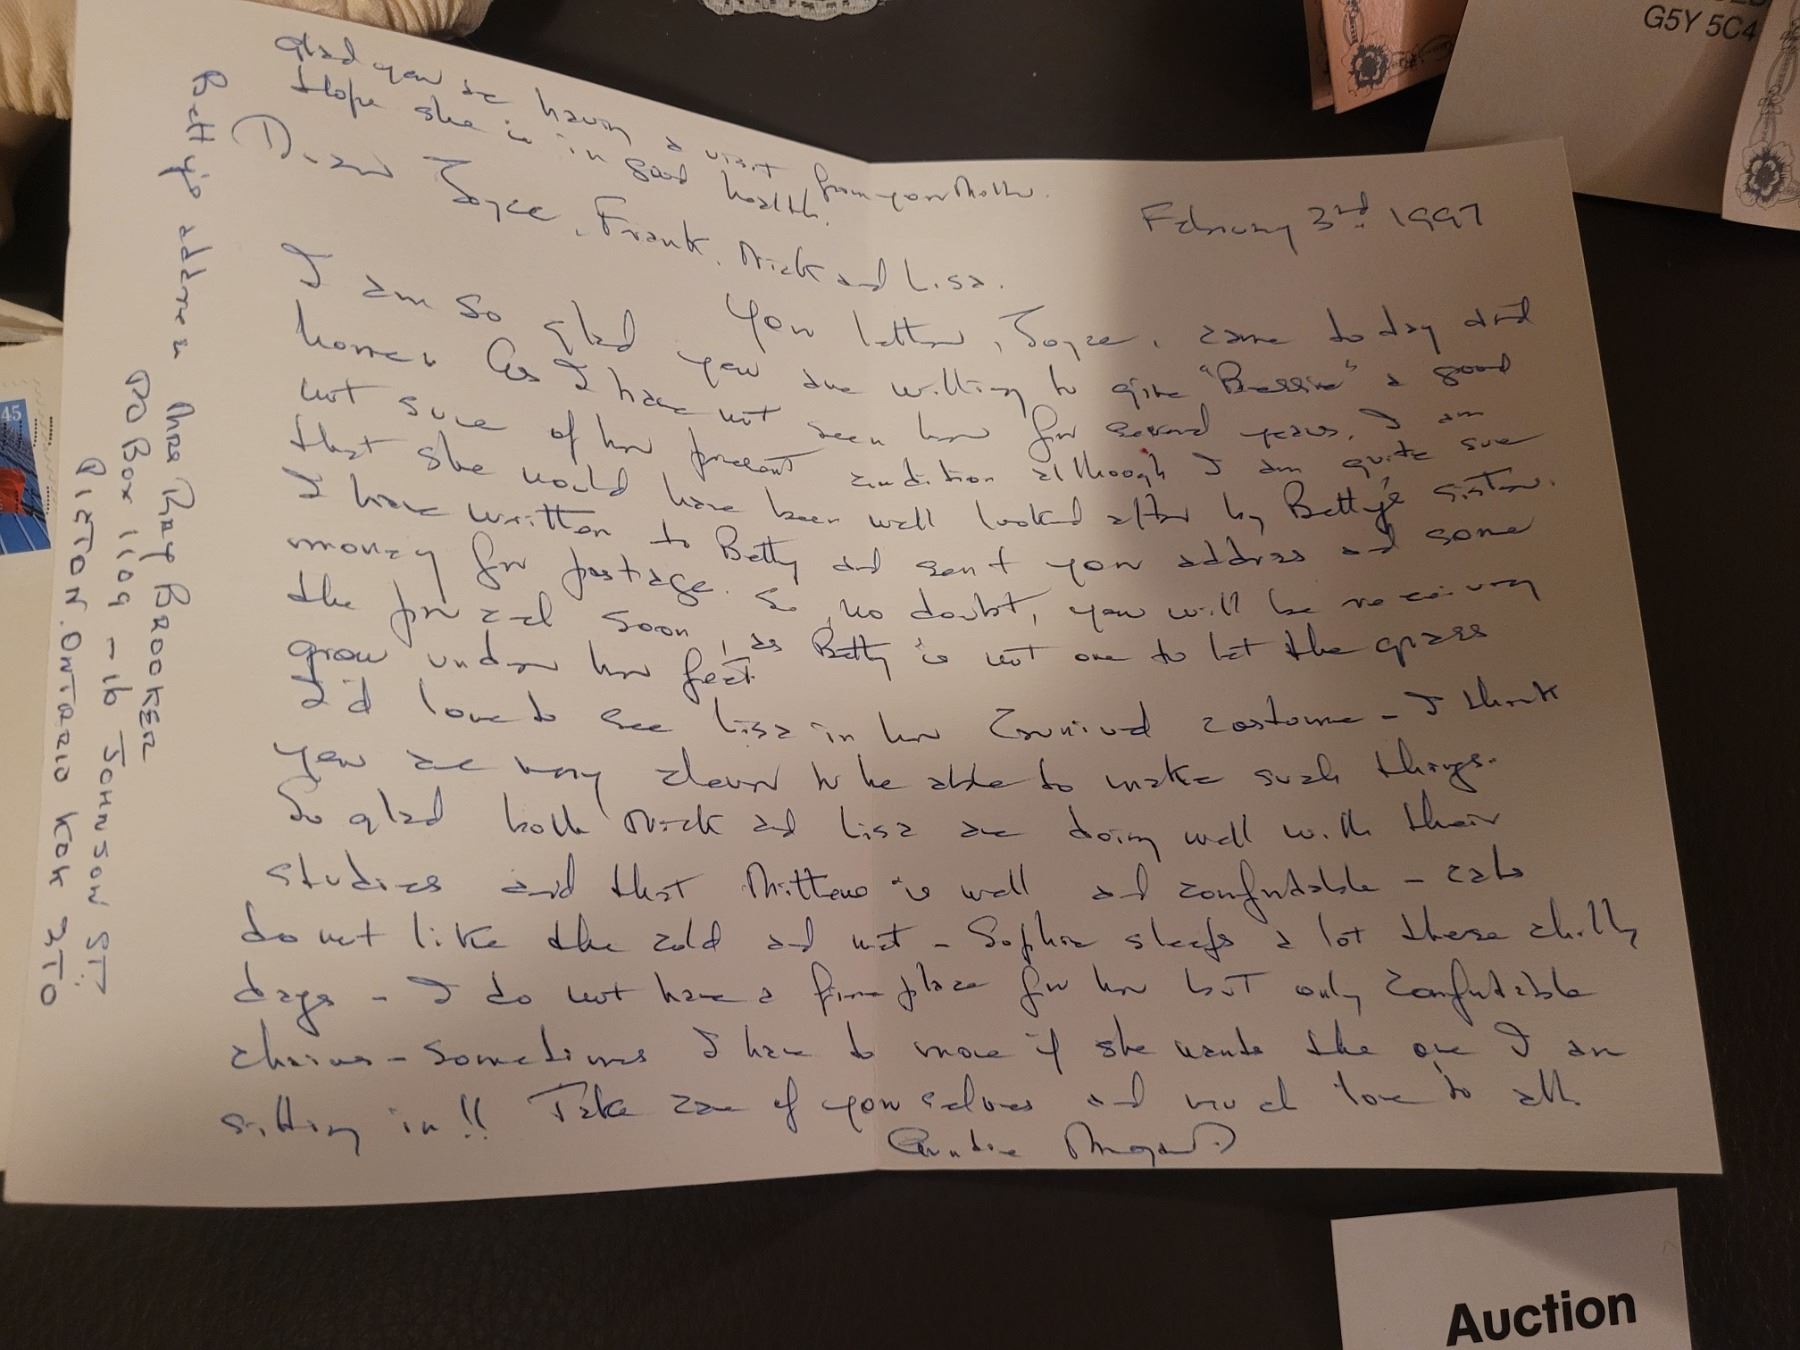 Glad you are having a visit from your Mother.
Hope she is in good health.
February 3rd 1997
Dear Joyce, Frank, Nick and Lisa.
I am so glad your letter, Joyce, came today and
glad you are willing to give "Bessie" a good
home. As I have not seen her for several years, I am
not sure of her present condition although I am quite sure
that she would have been well looked after by Betty's sister.
I have written to Betty and sent your address and some
money for postage. So no doubt, you will be receiving
the parcel soon, as Betty is not one to let the grass
grow under her feet.
I'd love to see Lisa in her Carnival costume - I think
you are very clever to be able to make such things.
So glad both Nick and Lisa are doing well with their
studies and that Mittens is well and comfortable - cats
do not like the cold and wet - Sophie sleeps a lot these chilly
days - I do not have a fireplace for her but only comfortable
chairs - sometimes I have to move if she wants the one I am
sitting in!! Take care of yourselves and much love to all.
Auntie
Betty's address is Mrs Ray BROOKER
PO BOX 1109 - 16 JOHNSON ST.
PICTON. ONTARIO K0K 2T0
45
G5Y 5C4
Auction